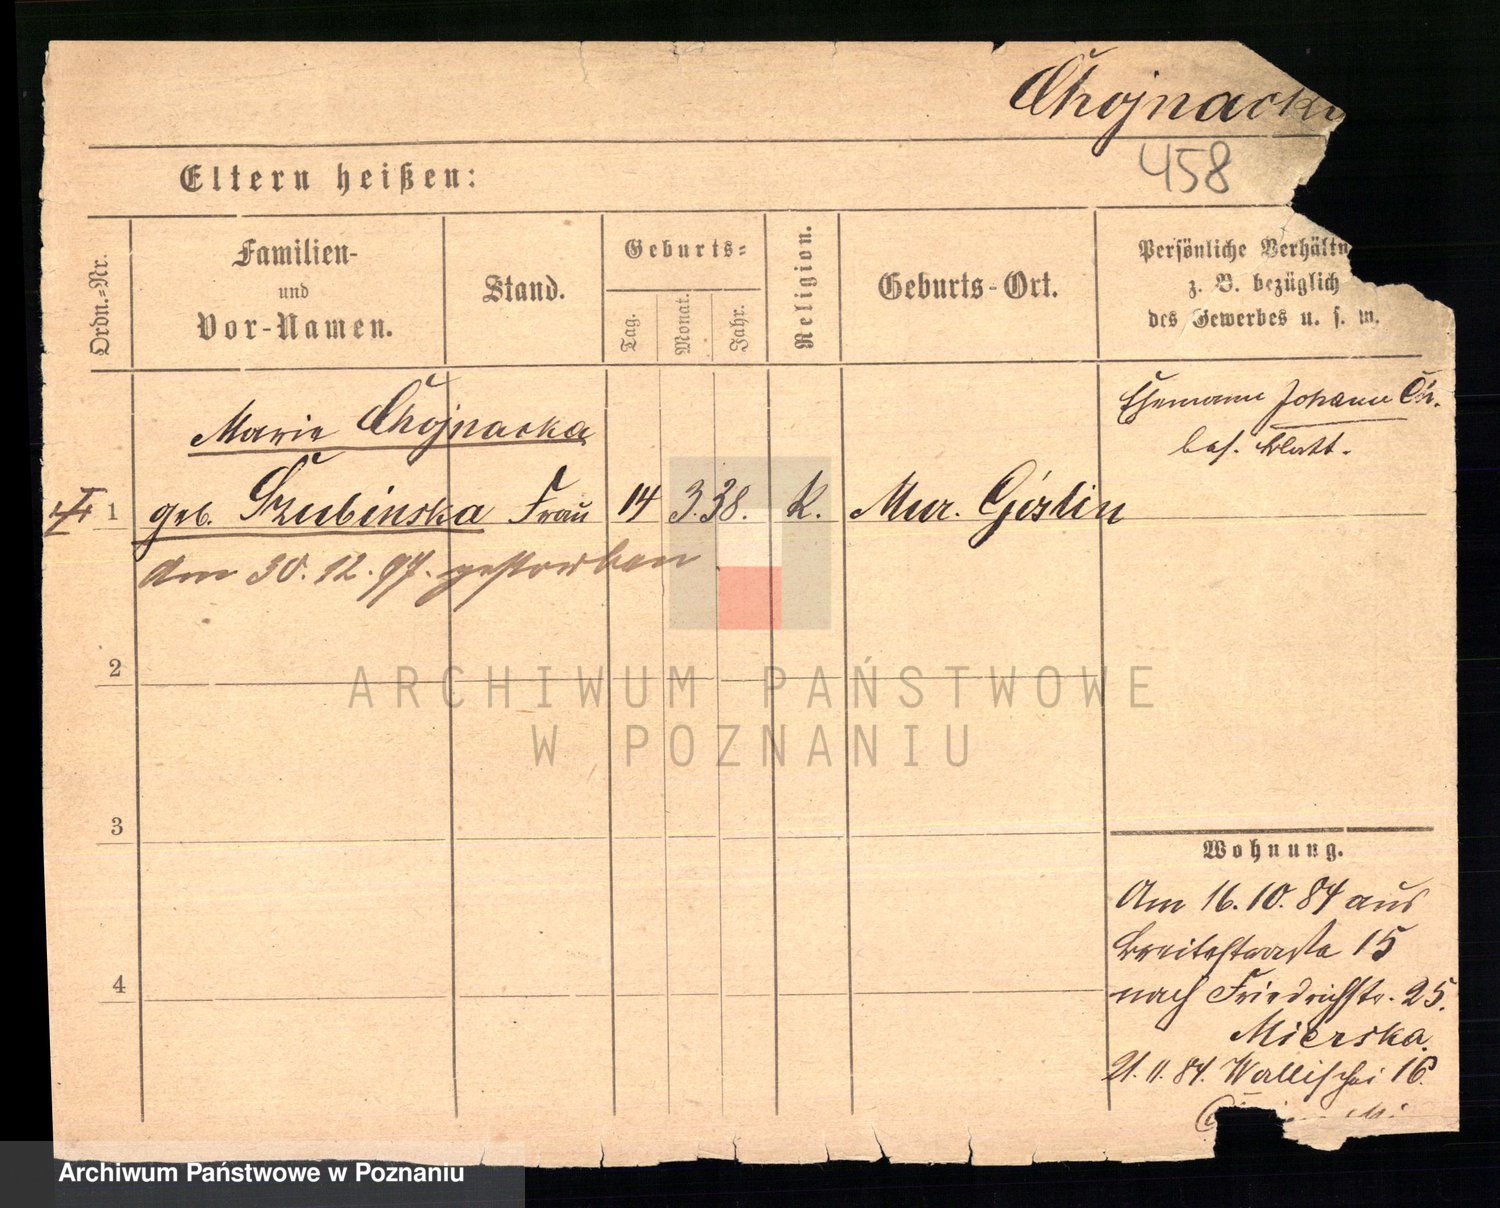 Chojnacka
458
Eltern heißen:
Ordn.-Nr.
Familien-
und
Vor-Namen.
Stand.
Geburts-
Tag.
Monat.
Jahr.
Religion.
Geburts-Ort.
Persönliche Verhältn
z. B. bezüglich
des Gewerbes u. s. w.
Ehemann Johann Ch.
bes. Blatt.
Marie Chojnacka
1 geb. Szubinska Frau 14 3. 38. k. Mur. Goslin
Am 30. 12. 97. gestorben
2
3
4
Wohnung.
Am 16. 10. 84 aus
Breitestrasse 15
nach Friedrichstr. 25.
Mierska.
21. 11. 84. Wallischei 16.
ARCHIWUM PAŃSTWOWE
W POZNANIU
Archiwum Państwowe w Poznaniu